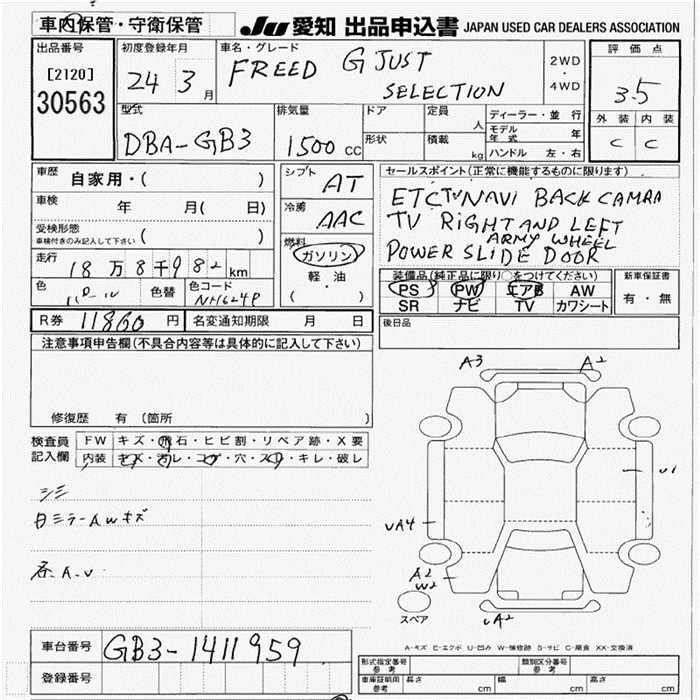 車内保管・守衛保管
JU 愛知 出品申込書 JAPAN USED CAR DEALERS ASSOCIATION
出品番号
[2120]
30563
初度登録年月
24 3 月
車名・グレード
FREED G JUST
SELECTION
2WD
・
4WD
評価点
3.5
外装 内装
C C
型式
DBA-GB3
排気量
1500 cc
ドア
形状
定員
人
積載
kg
ディーラー・並行
モデル年式 年
ハンドル 左・右
車歴
自家用・( )
車検 年 月( 日)
受検形態
車検付きのみ記入して下さい ( )
走行
18万8千982km
色
色替
色コード
NH624P
シフト
AT
冷房
AAC
燃料
ガソリン
・
軽・油
( )
セールスポイント(正常に機能するものに限ります)
ETC TV NAVI BACK CAMRA
TV RiGHT AND LEFT
ARMY WHEEL
POWER SLiDE DOOR
装備品(純正品に限り○をつけてください)
PS PW エアB AW
SR ナビ TV カワシート
新車保証書
有・無
R券 11860 円
名変通知期限 月 日
後日品
注意事項申告欄(不具合内容等は具体的に記入して下さい)
修復歴 有 〔箇所 〕
検査員
記入欄
FW キズ・飛石・ヒビ割・リペア跡・X要
内装 キズ・汚レ・コゲ・穴・スレ・キレ・破レ
シミ
ミラーAWキズ
各A.U
A3
A2
U1
UA4
A2
W2
UA2
スペア
A-キズ E-エクボ U-凹み W-補修跡 S-サビ C-腐食 XX-交換済
車台番号
GB3-1411959
登録番号
形式指定番号
参考
類別区分番号
参考
車庫証明用
参考
長さ cm
幅 cm
高さ cm